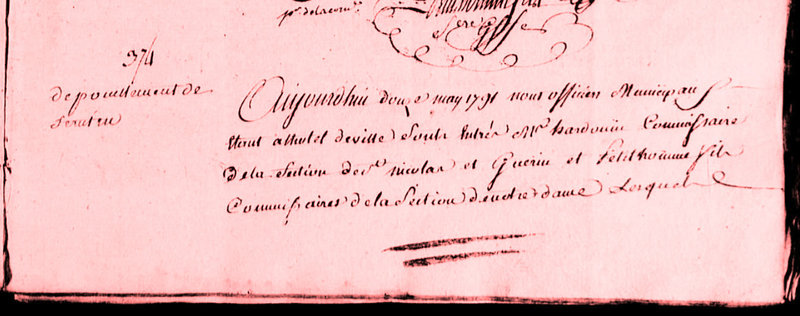 pr. de la com.
Sre Gffe
374
depouillement de
scrutin
Aujourdhui douze may 1791 nous officiers Municipaux
etant a lhotel de ville Sont Entrés Mrs hardouin Commissaire
de la Section de St nicolas et Guerin et Petithomme fils
Commissaires de la Section de notre dame Lesquels